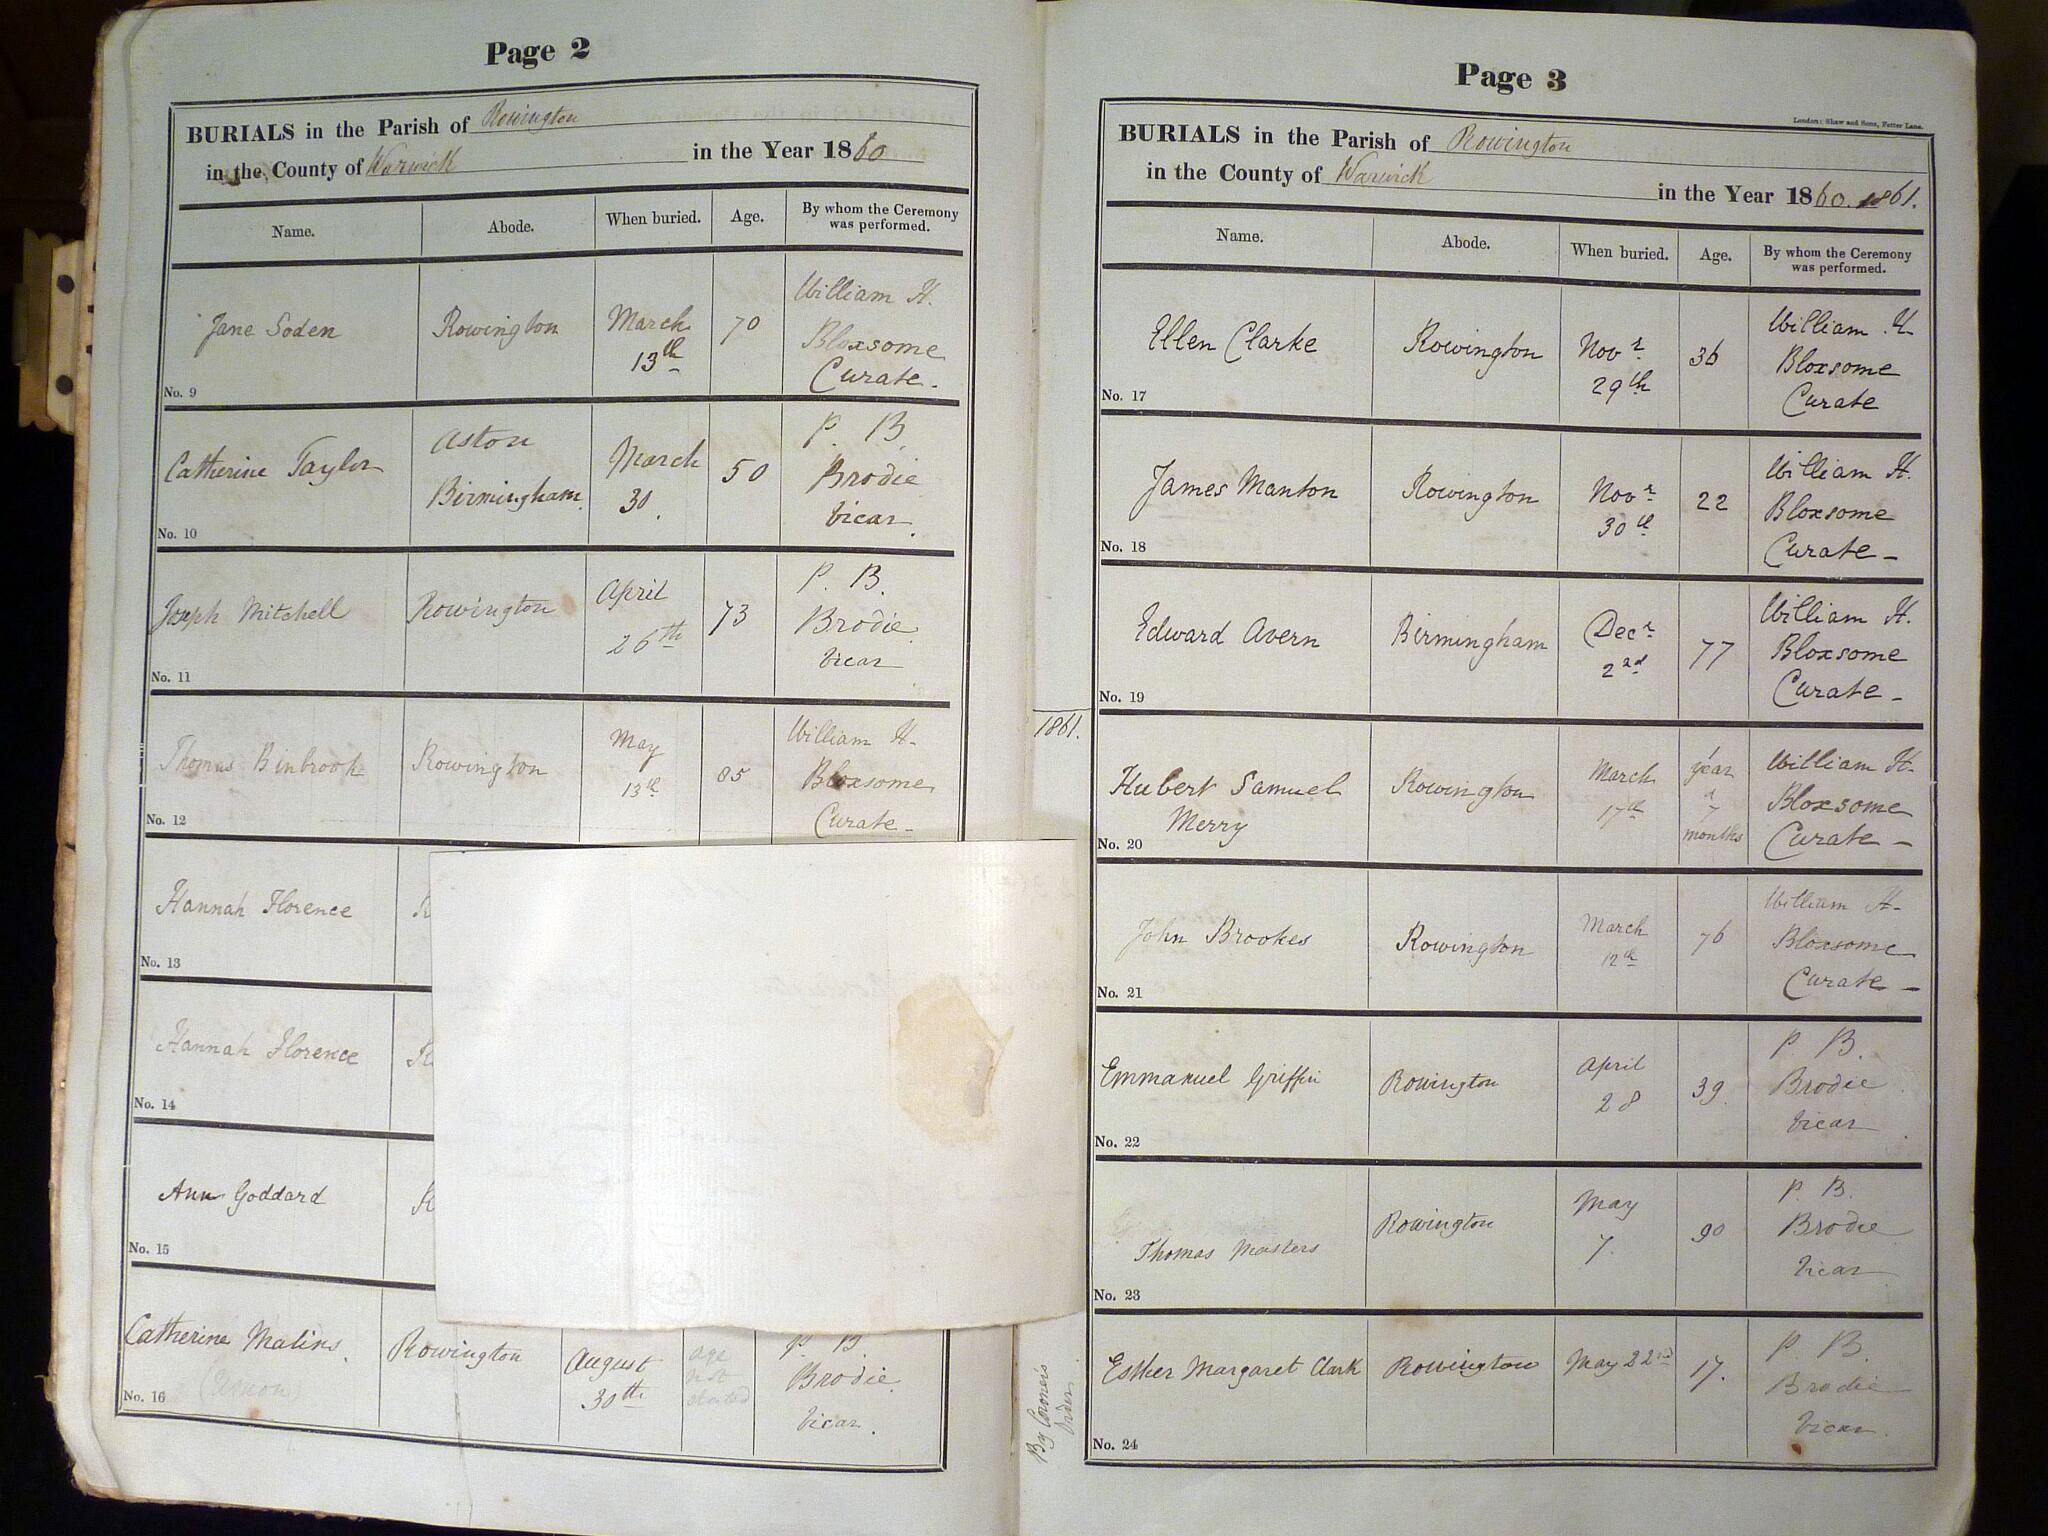 Page 2
BURIALS in the Parish of Rowington
in the County of Warwick in the Year 1860
Name. Abode. When buried. Age. By whom the Ceremony was performed.
Jane Soden Rowington March 13th 70 William H. Bloxsome Curate.
No. 9
Catherine Taylor Aston Birmingham. March 30. 50 P. B. Brodie Vicar.
No. 10
Joseph Mitchell Rowington April 26th 73 P. B. Brodie. Vicar
No. 11
Thomas Binbrook Rowington May 13th 85 William H. Bloxsome Curate
No. 12
Hannah Florence
No. 13
Hannah Florence
No. 14
Ann Goddard
No. 15
Catherine Malins. Rowington August 30th age not stated P. B. Brodie. Vicar.
No. 16
Page 3
London: Shaw and Sons, Fetter Lane.
BURIALS in the Parish of Rowington
in the County of Warwick in the Year 1860. 1861.
Name. Abode. When buried. Age. By whom the Ceremony was performed.
Ellen Clarke Rowington Novr 29th 36 William H Bloxsome Curate
No. 17
James Manton Rowington Novr 30th 22 William H. Bloxsome Curate
No. 18
Edward Avern Birmingham Decr 22d 77 William H. Bloxsome Curate
No. 19
1861.
Hubert Samuel Merry Rowington March 17th year 7 months William H. Bloxsome Curate
No. 20
John Brookes Rowington March 12th 76 William H. Bloxsome Curate
No. 21
Emmanuel Griffin Rowington April 28 39 P. B. Brodie Vicar
No. 22
Thomas Masters Rowington May 7. 90 P. B. Brodie Vicar
No. 23
Esther Margaret Clark Rowington May 22nd 17. P. B. Brodie Vicar.
No. 24
By Coroner's Order.